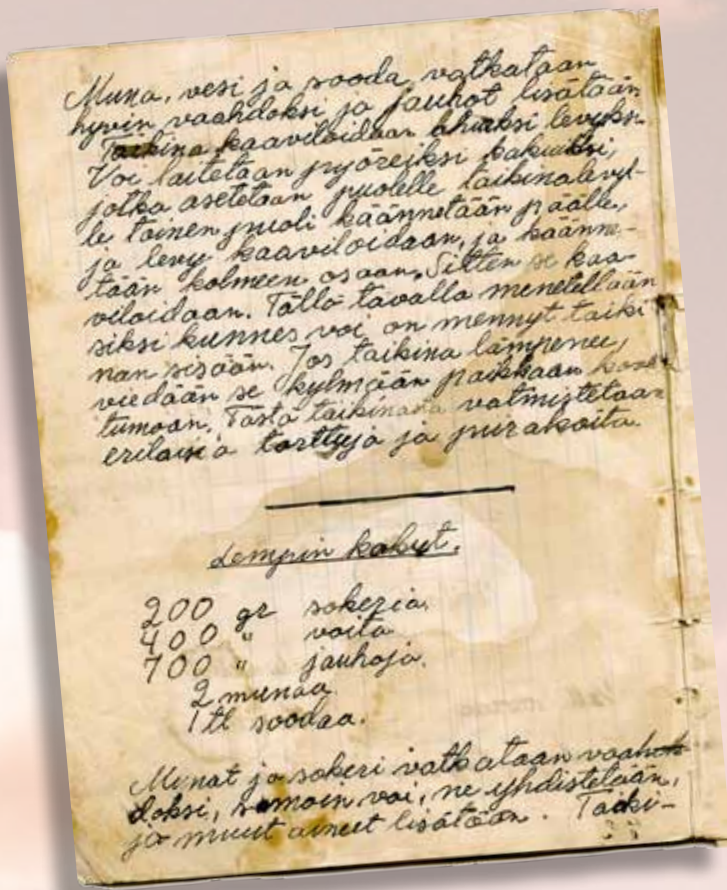 Muna, vesi ja sooda vatkataan
hyvin vaahdoksi ja jauhot lisätään
Taikina kaaviloidaan ohueksi levyksi.
Voi laitetaan pyöreiksi kakuiksi,
jotka asetetaan puolelle taikinalevyl-
le, toinen puoli käännetään päälle,
ja levy kaaviloidaan, ja käänne-
tään kolmeen osaan. Sitten se kaa-
viloidaan. Tällä tavalla menetellään
siksi kunnes voi on mennyt taiki
nan sisään. Jos taikina lämpenee,
viedään se kylmään paikkaan kove
tumaan. Tästä taikinasta valmistetaan
erilaisia torttuja ja piirakoita.
Lempin kakut.
200 gr sokeria.
400 " voita
700 " jauhoja.
2 munaa.
1 tl soodaa.
Munat ja sokeri vatkataan vaah
doksi, samoin voi, ne yhdistetään,
ja muut aineet lisätään. Taiki-